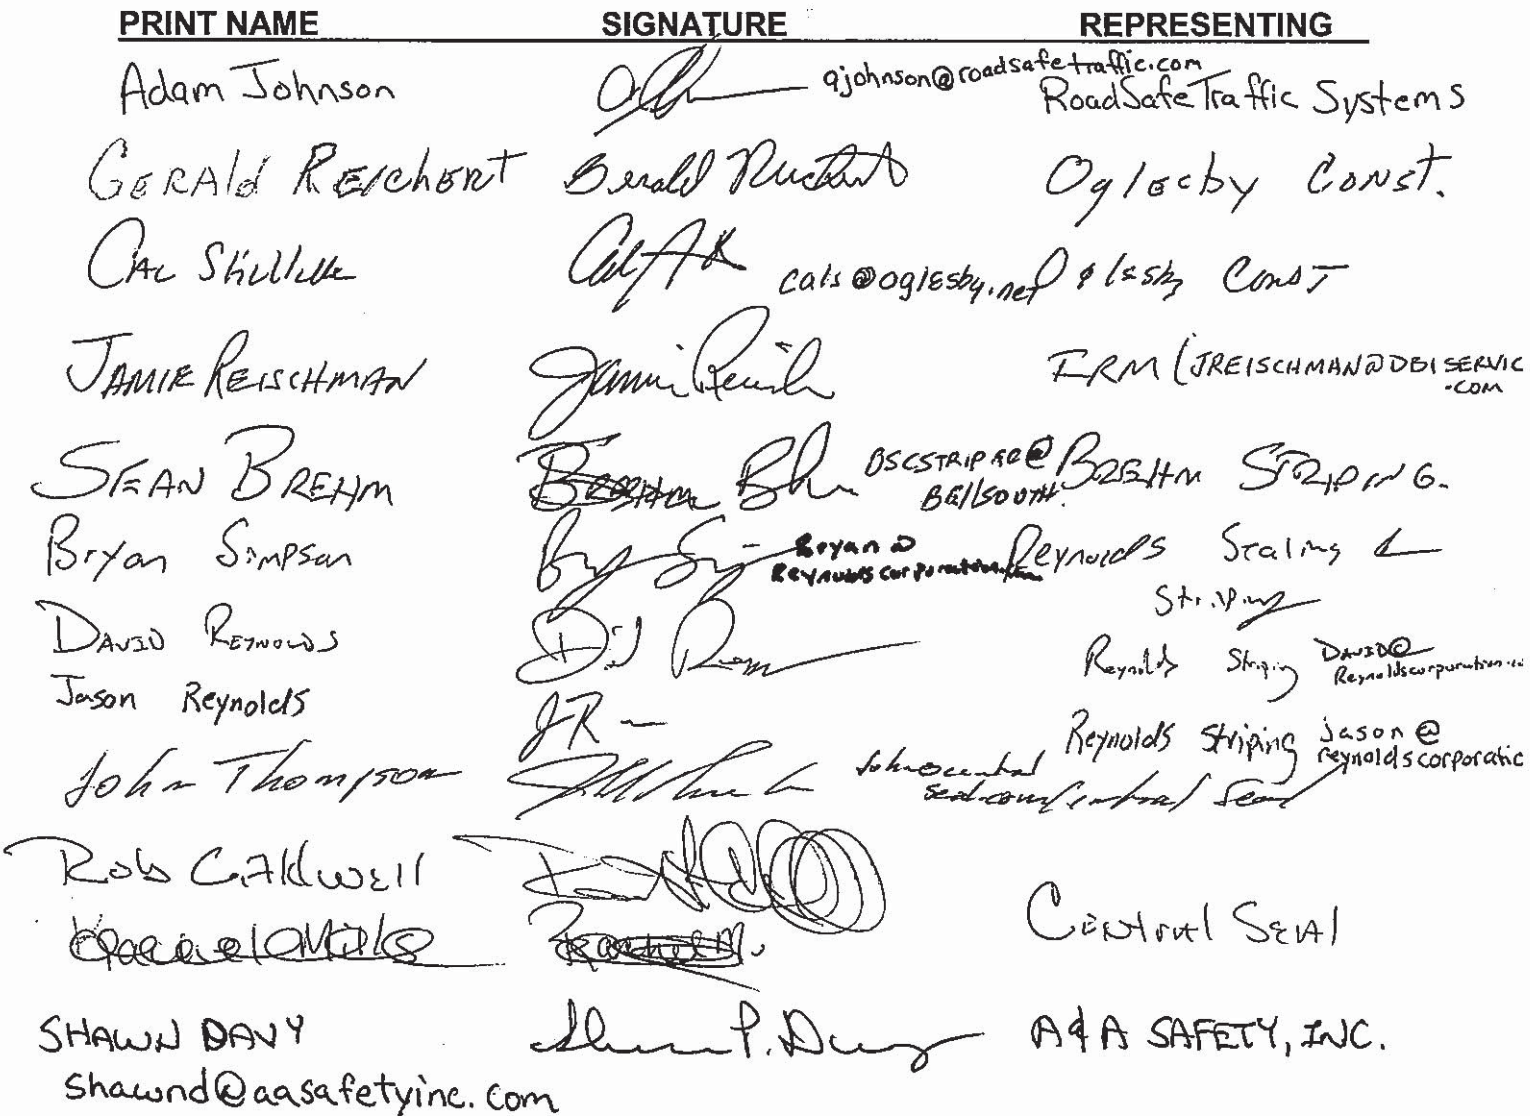 PRINT NAME SIGNATURE REPRESENTING
Adam Johnson ajohnson@roadsafetraffic.com
RoadSafe Traffic Systems
GERAld REIchERT Gerald Oglesby Const.
CAL cals@oglesby.net Oglesby Const
JAMIE REISCHMAN Jamie IRM (JREISCHMAN@DBISERVIC
.COM
SEAN BREHM BREHM BSCSTRIPING@ BREHM STRIPING.
BEllSOUTH.
Bryan Simpson Bryan@ Reynolds Sealing &
Reynoldscorporation.com
Striping
DAVID REYNOLDS Reynolds Striping DAVID@
Reynoldscorporation.co
Jason Reynolds JR Reynolds Striping jason@
reynoldscorporatio
John Thompson John@central
seal.com Central Seal
Rob CAldwEll
Central SEAl
Rachel M.
SHAWN DAVY Shawn P. Davy A & A SAFETY, INC.
shawnd@aasafetyinc.com